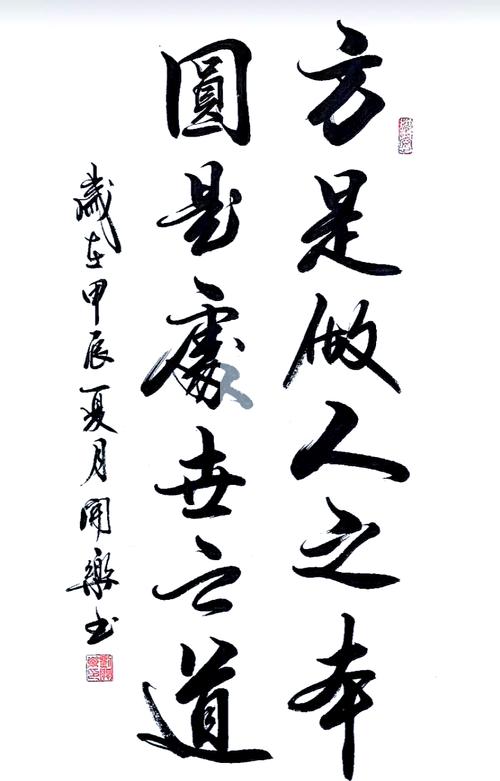 方是做人之本
圓是處世之道
歲在甲辰夏月開樂书